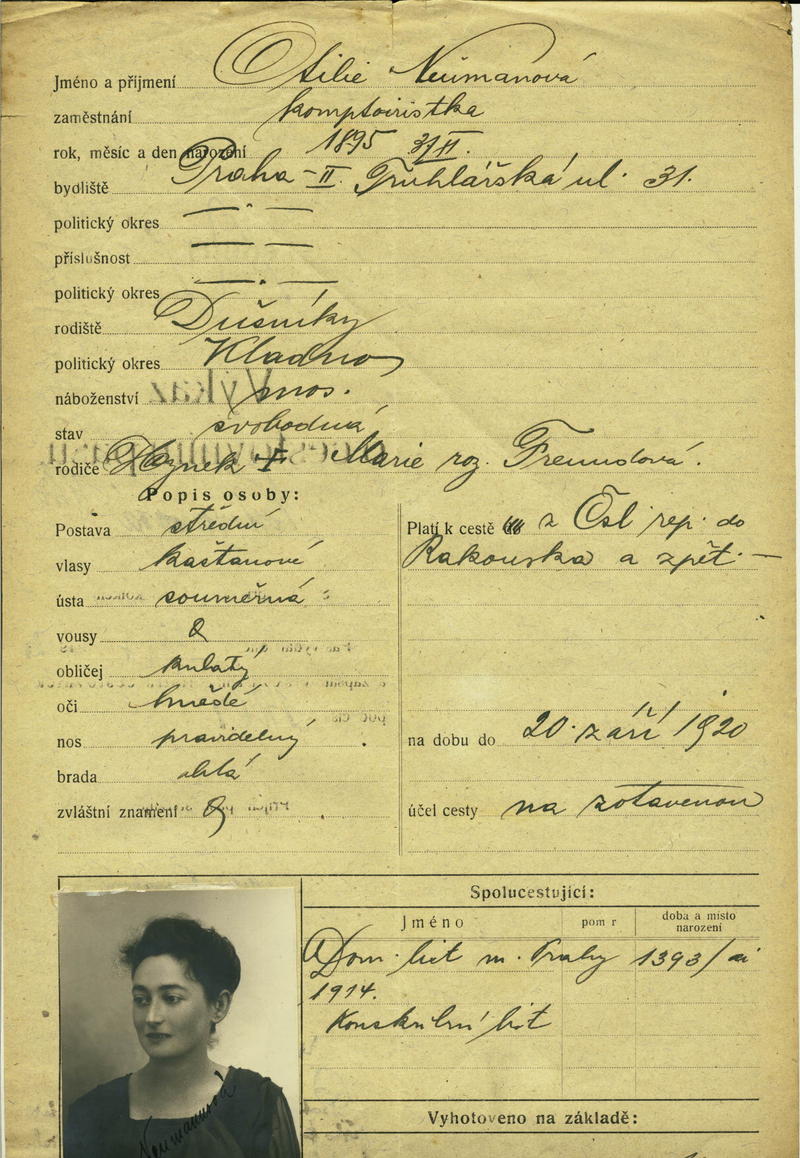 Jméno a příjmení Otilie Neumanová
zaměstnání komptoiristka
rok, měsíc a den narození 1895
bydliště Praha - II. Truhlářská ul. 31.
politický okres — . —
příslušnost — . —
politický okres — . —
rodiště Dušníky
politický okres Kladno
náboženství mos.
stav svobodná
rodiče Hynek + Marie roz. Freundová.
Popis osoby:
Postava střední
vlasy kaštanové
ústa souměrná
vousy 0
obličej kulatý
oči hnědé
nos pravidelný
brada oblá
zvláštní znamení 0
Platí k cestě z Čsl. rep. do
Rakouska a zpět. —
na dobu do 20. září 1920
účel cesty na zotavenou
Spolucestující:
Jméno pom r doba a místo
narození
Dom. list m. Prahy 1393/ai
1914.
Konskripční list
Vyhotoveno na základě:
Neumannová